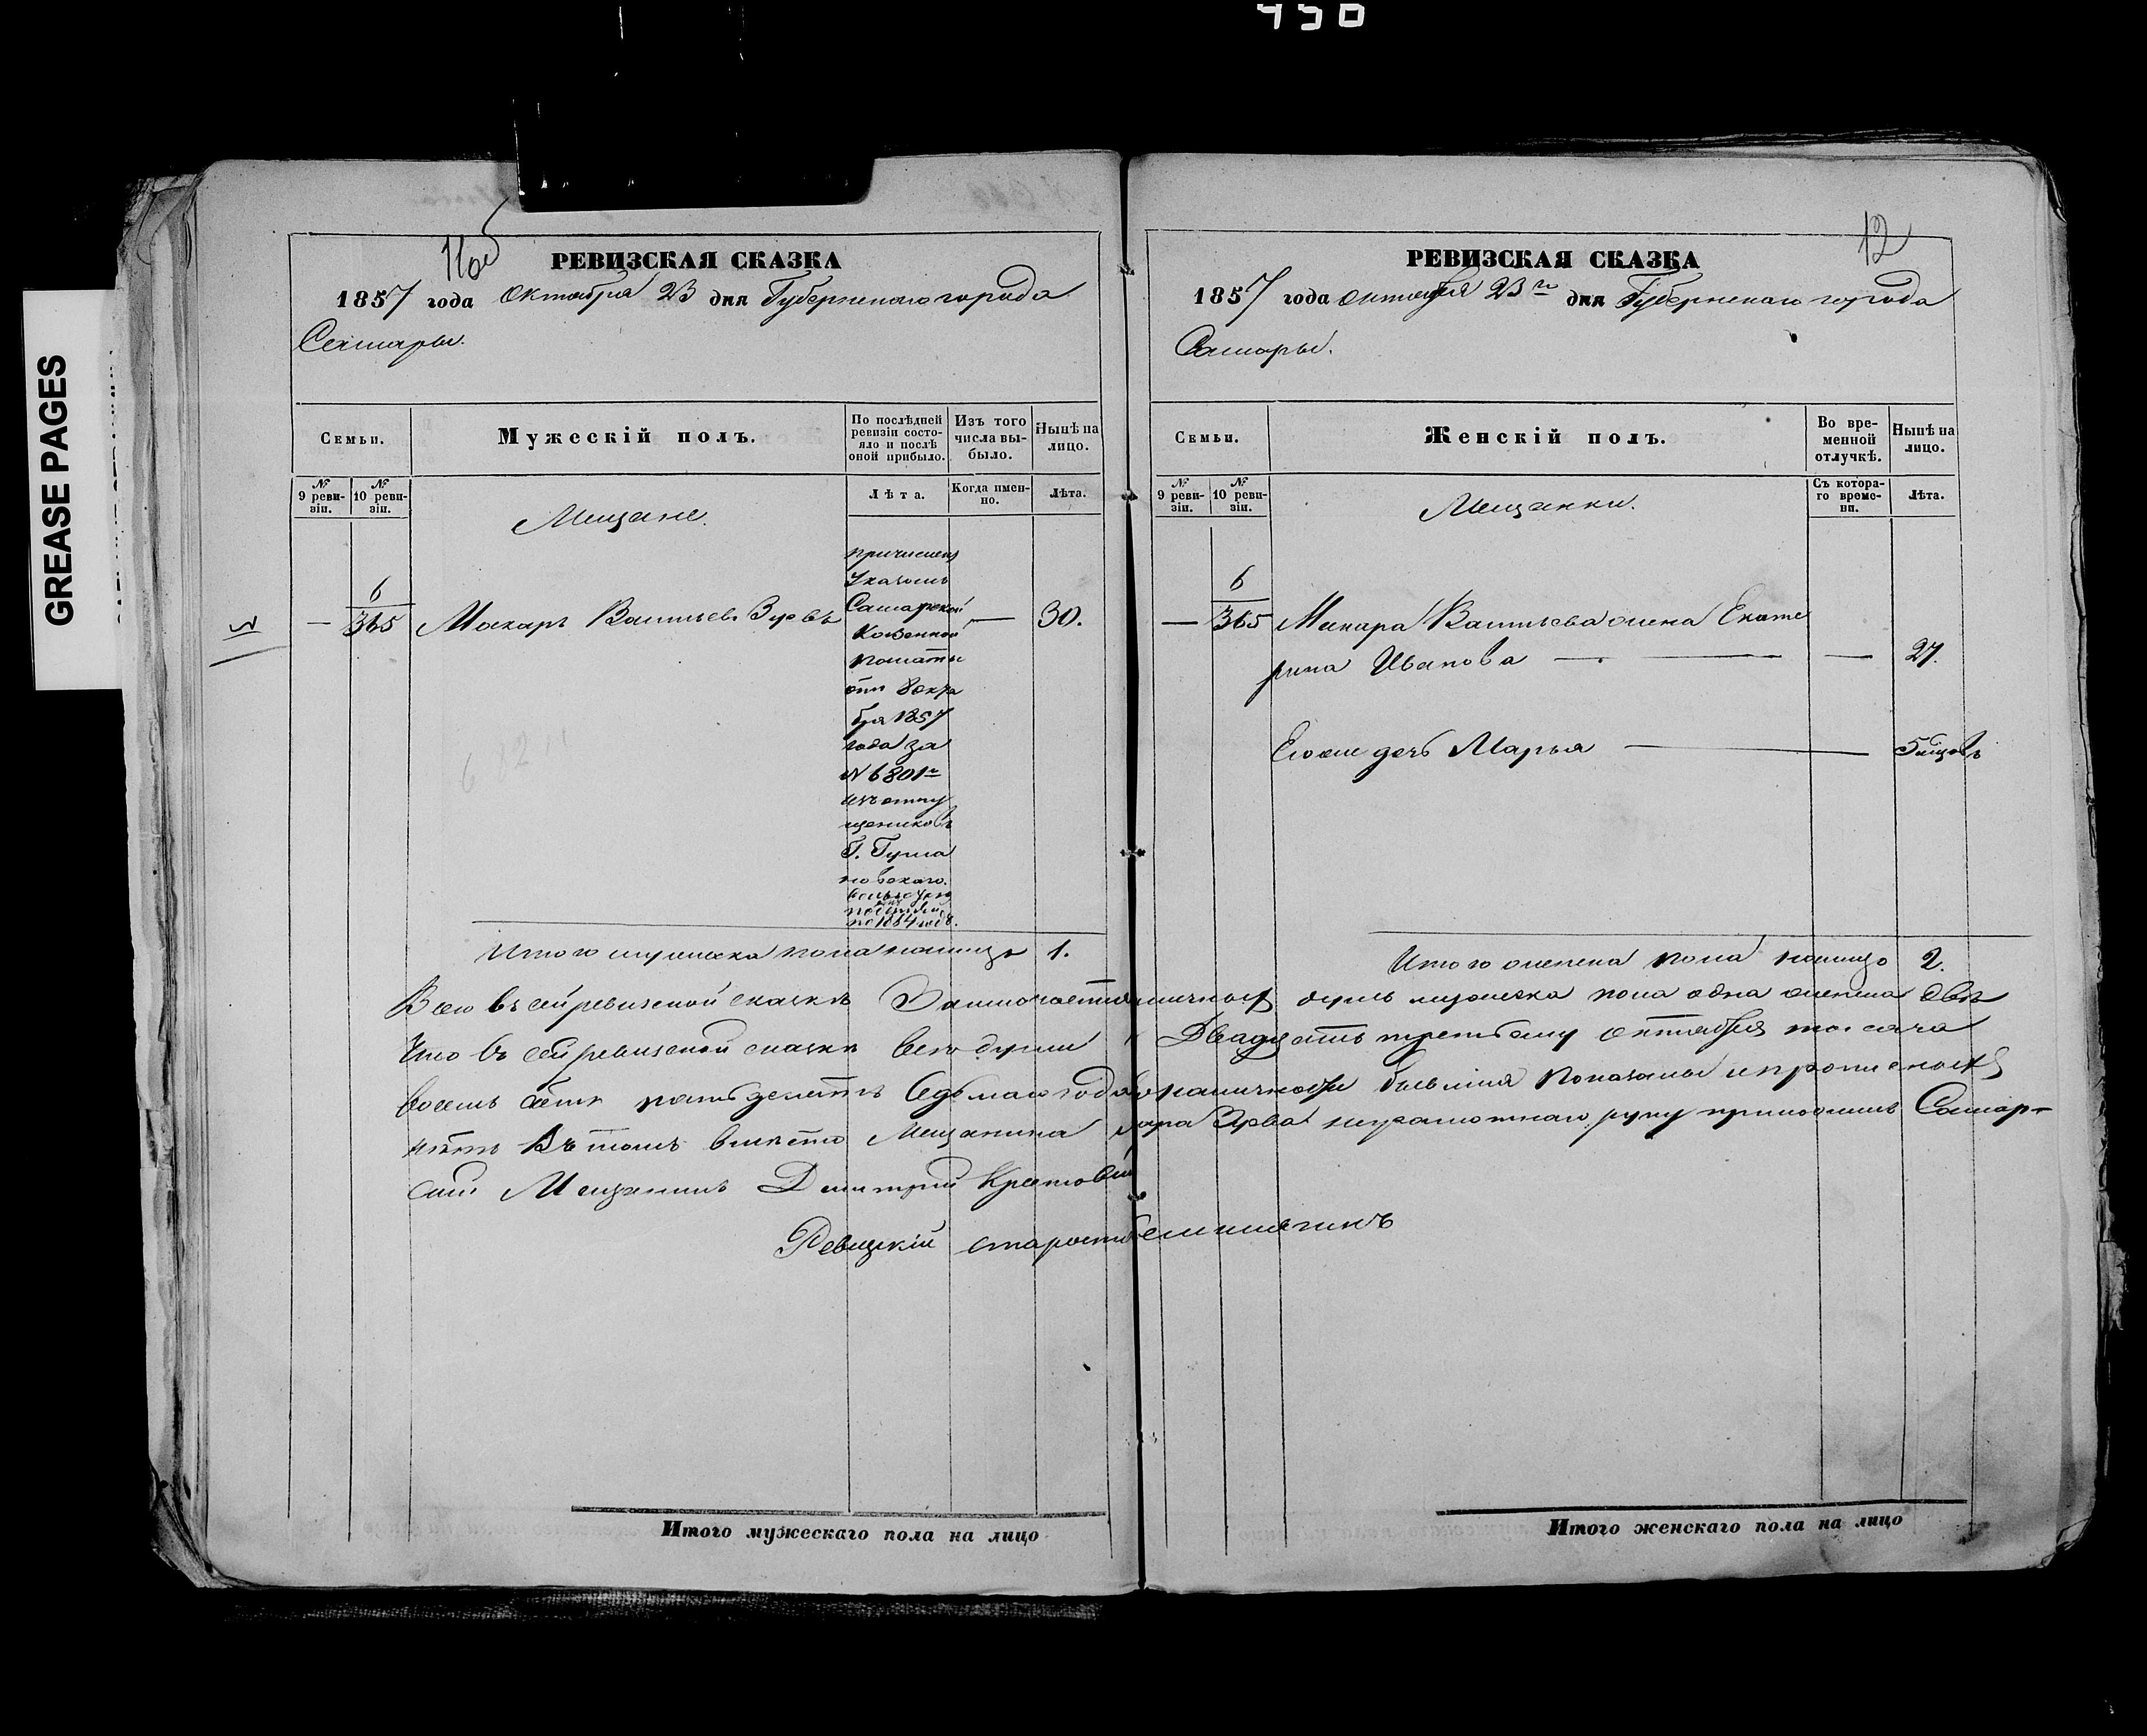 450
GREASE PAGES
11об
РЕВИЗСКАЯ СКАЗКА
1857 года Октября 23 дня Губернскаго города
Самары.
Семьи.
Мужескій полъ.
По послѣдней ревизіи состояло и послѣ оной прибыло.
Изъ того числа выбыло.
Нынѣ на лицо.
№ 9 ревизіи.
№ 10 ревизіи.
Лѣта.
Когда именно.
Лѣта.
Мещане.
6
— 365 Макаръ Васильев. Зуевъ — 30.
причисленъ
Указомъ
Самарской
Казенной
палаты
отъ 8 октя
бря 1857
года за
№ 6801м
изъ отпу
щениковъ
Г. Турча
новскаго.
Итого мужеска пола налицо 1.
12
РЕВИЗСКАЯ СКАЗКА
1857 года октября 23го дня Губернскаго города
Самары.
Семьи.
Женскій полъ.
Во временной отлучкѣ.
Нынѣ на лицо.
№ 9 ревизіи.
№ 10 ревизіи.
Съ котораго времени.
Лѣта.
Мещанки.
6
— 365 Макара Васильева жена Екате
рина Иванова — — 27.
Его же дочь Марья — 5 мцовъ
Итого женска пола налицо 2.
Всего въ сей ревизской сказкѣ Заключается наличныхъ душъ мужеска пола одна женска двѣ
Что въ сей ревизской сказкѣ все души к Двадцать третьему октября тысяча
восемь сотъ пятьдесятъ Седьмаго года в наличности бывшия показаны и прописныхъ
нѣтъ Въ томъ вместо Мещанина Макара Зуева неграмотнаго руку приложилъ Самар-
ский Мещанинъ Дмитрий
Ревизкій староста
Итого мужескаго пола на лицо
Итого женскаго пола на лицо